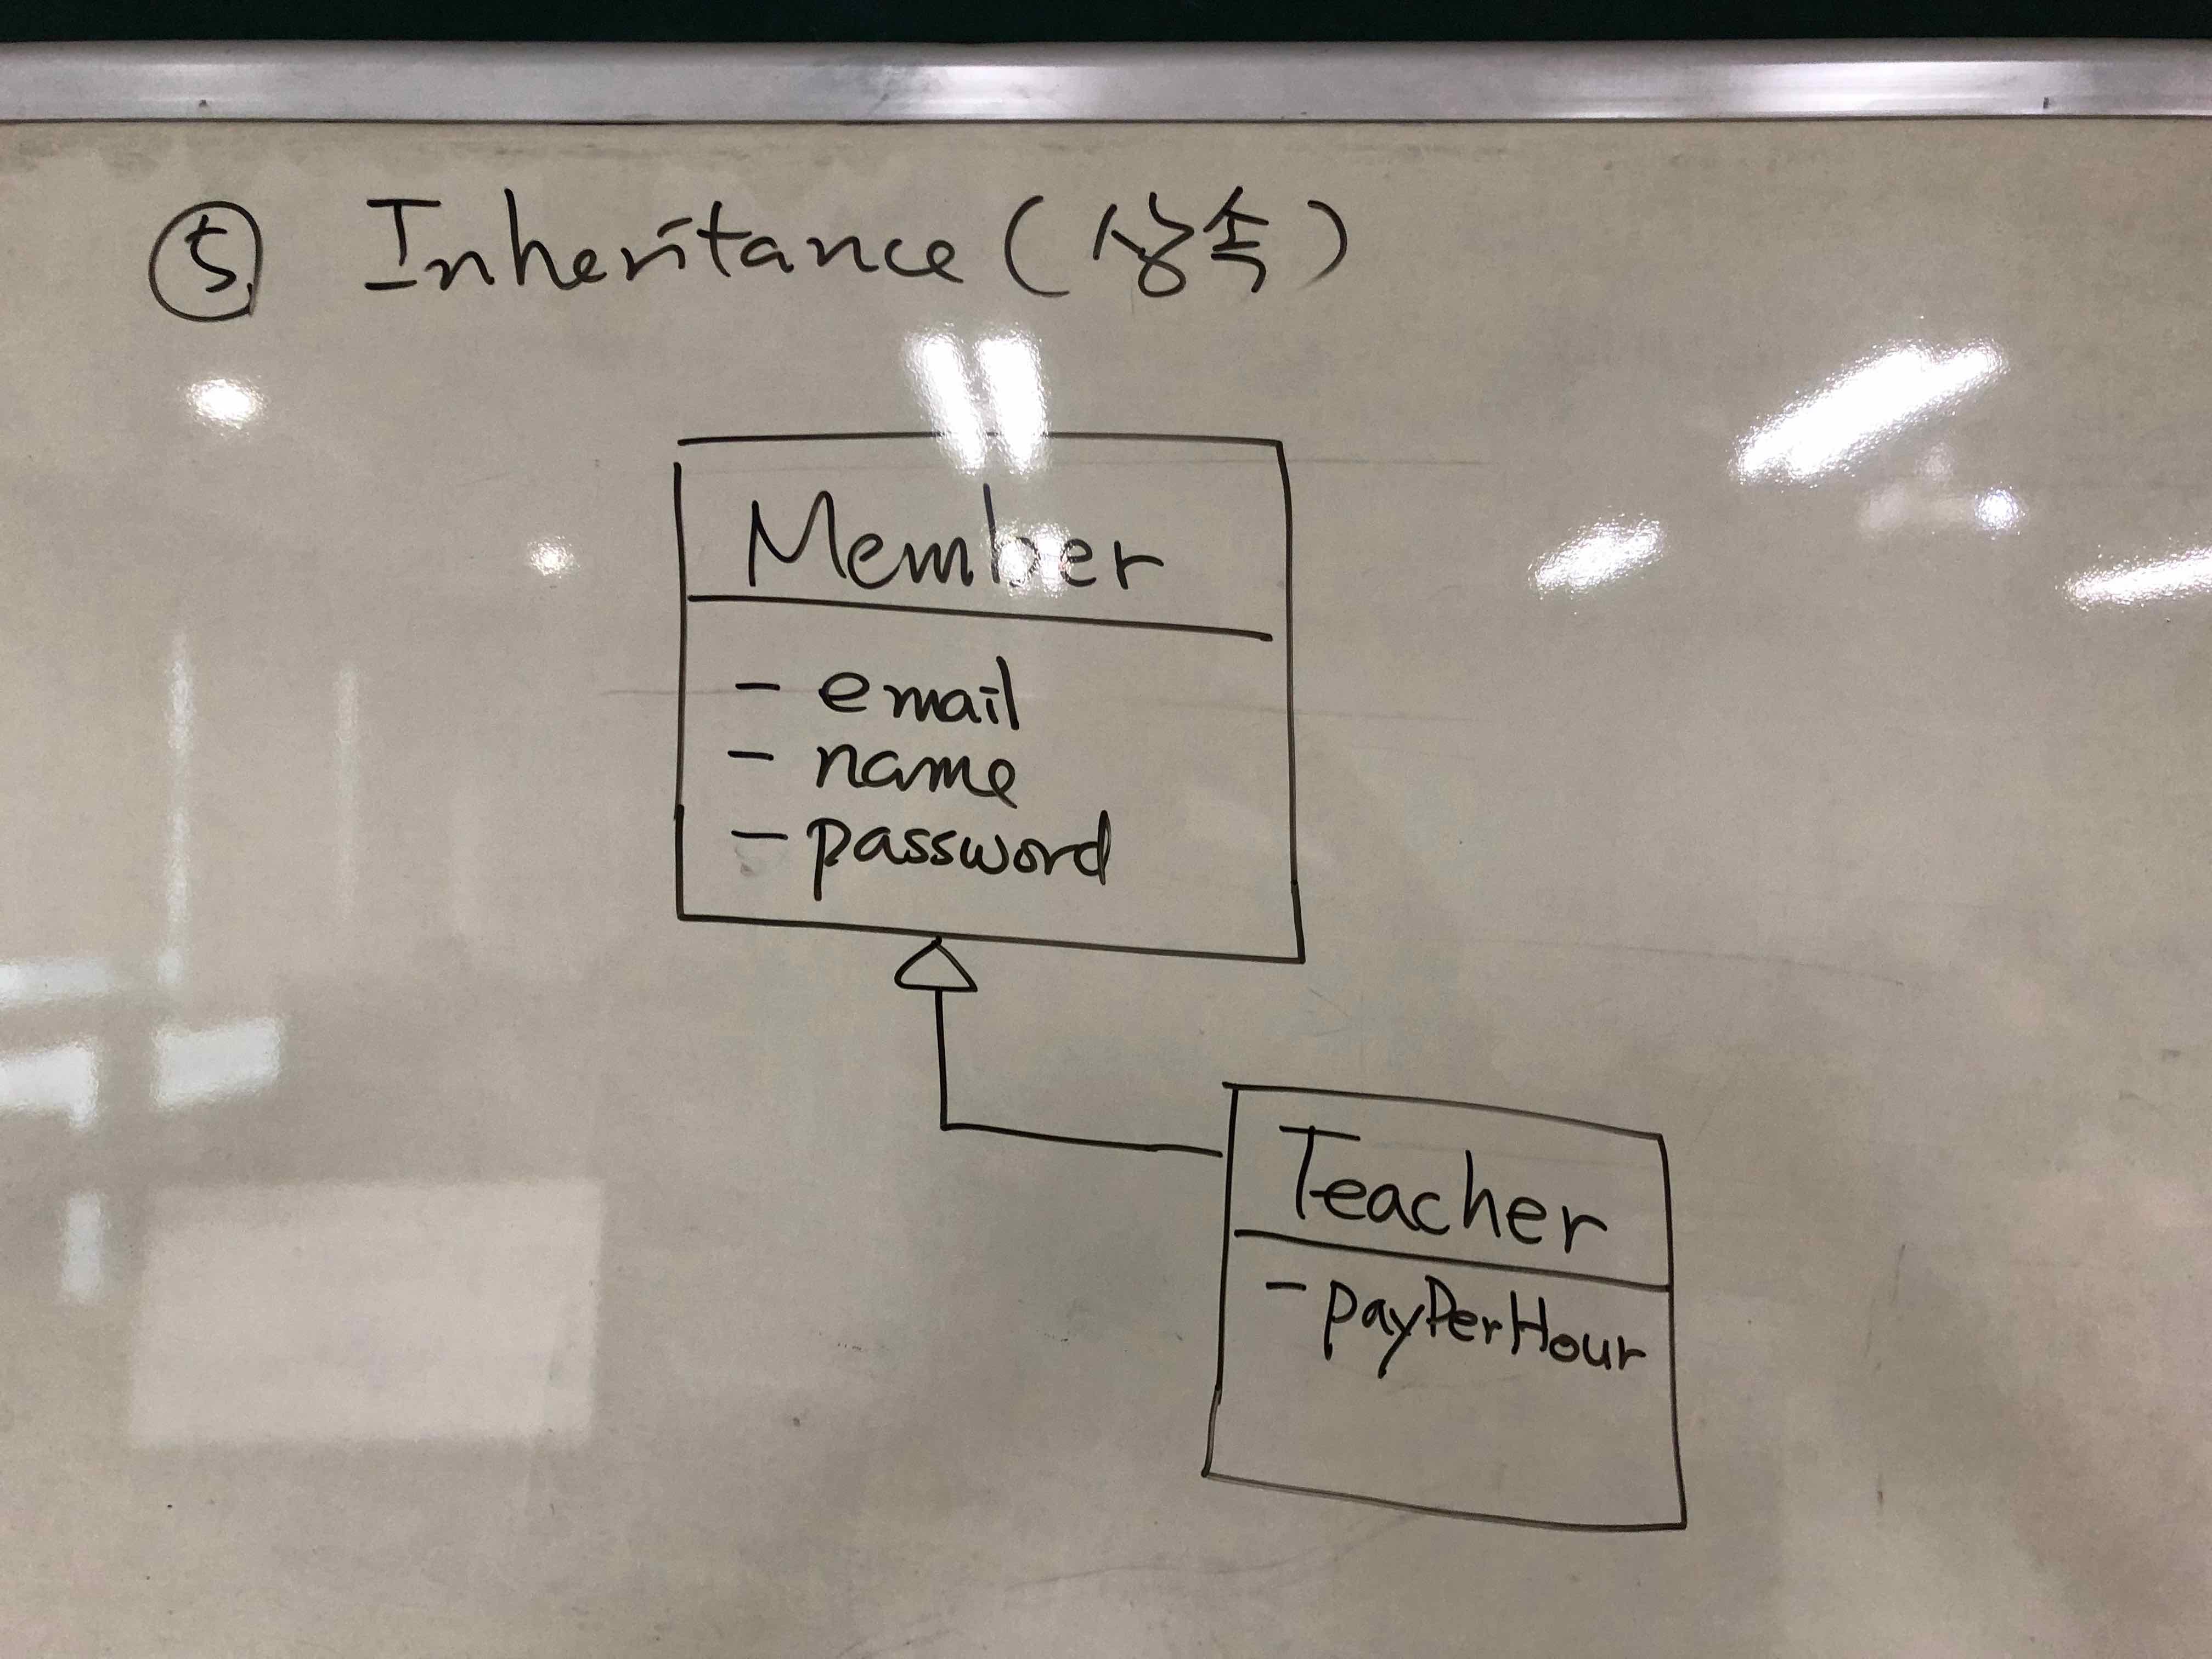 ⑤ Inheritance (상속)
Member
- email
- name
- password
Teacher
- payPerHour